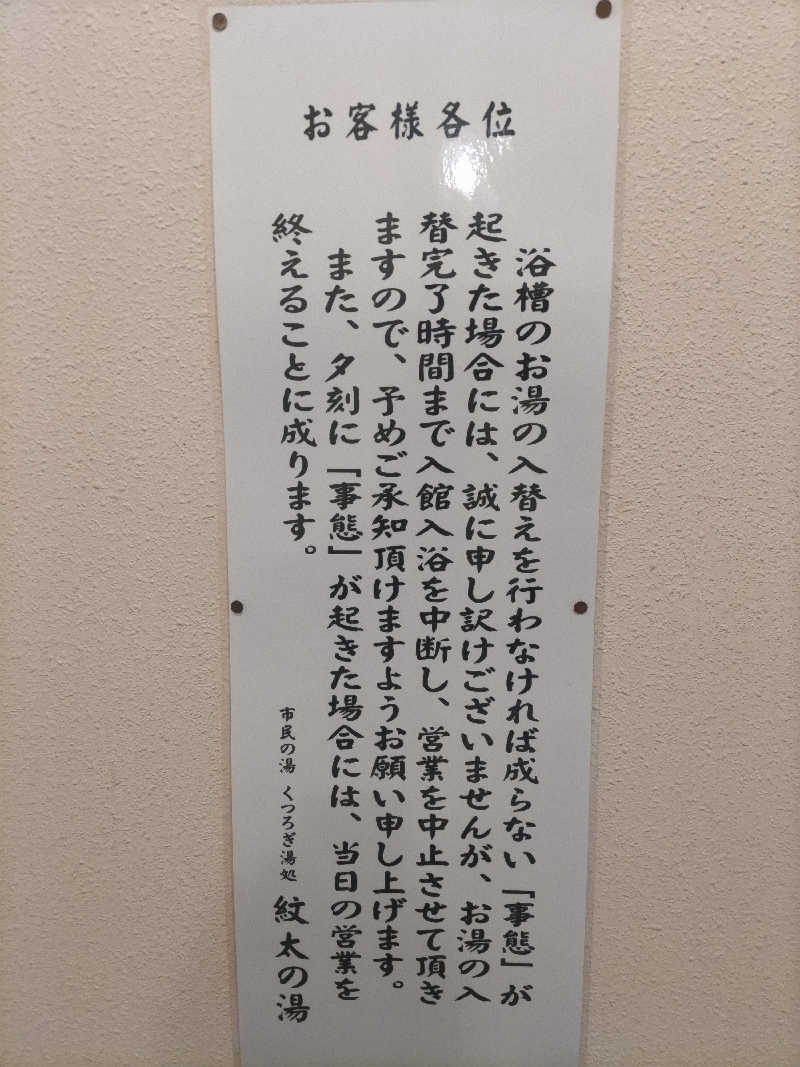 お客様各位
浴槽のお湯の入替えを行わなければ成らない「事態」が
起きた場合には、誠に申し訳けございませんが、お湯の入
替完了時間まで入館入浴を中断し、営業を中止させて頂き
ますので、予めご承知頂けますようお願い申し上げます。
また、夕刻に「事態」が起きた場合には、当日の営業を
終えることに成ります。
市民の湯 くつろぎ湯処 紋太の湯